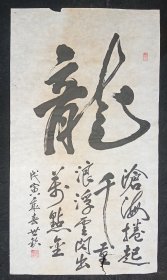 龍
滄海捲起
千重
浪浮雲閃出
萬點金
戊寅年春世敏